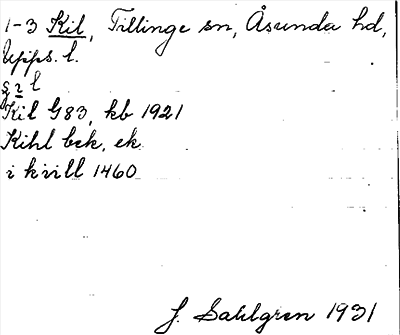 1-3 Kil, Tillinge sn, Åsunda hd,
Upps. l.
Kil G83, kb 1921
Kihl bek, ek.
i kvill 1460
J. Sahlgren 1931